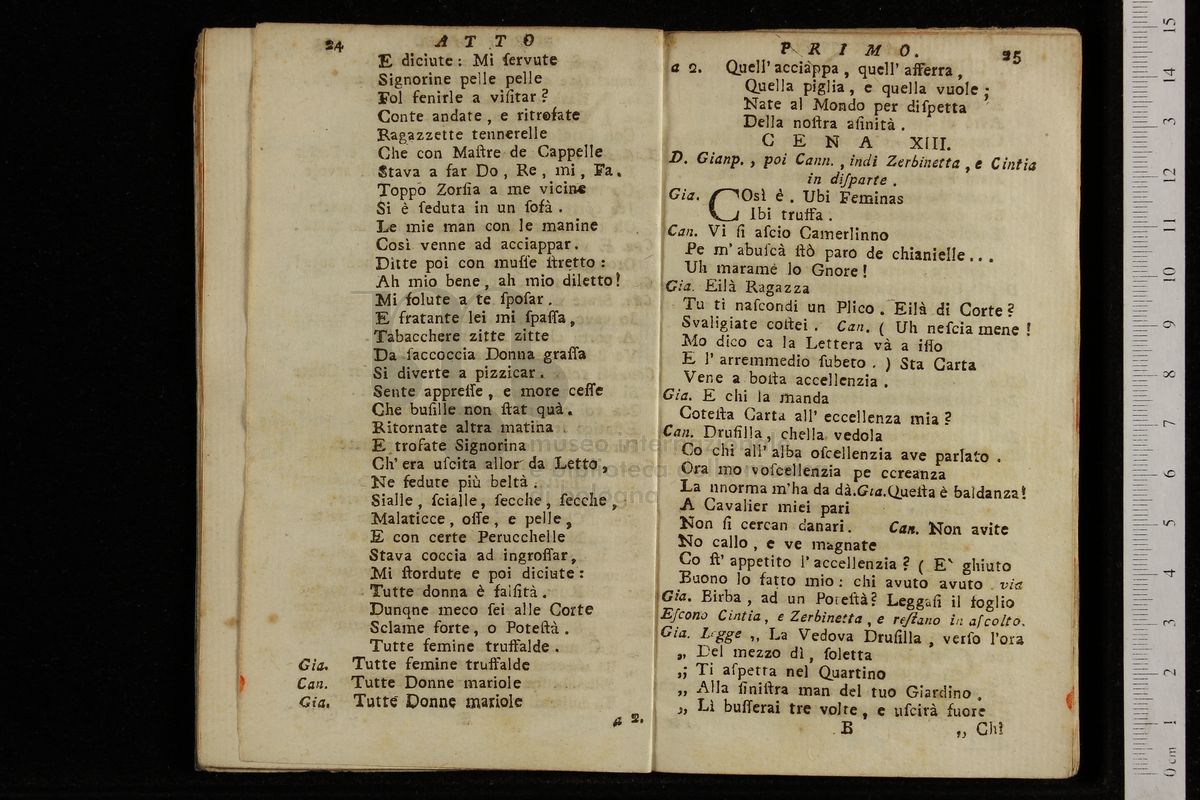 24
A T T O
E diciute : Mi ſervute
Signorine pelle pelle
Fol fenirle a viſitar ?
Conte andate , e ritrofate
Ragazzette tennerelle
Che con Maſtre de Cappelle
Stava a far Do , Re , mi , Fa .
Toppo Zorſia a me vicine
Si è ſeduta in un ſofà .
Le mie man con le manine
Così venne ad acciappar .
Ditte poi con muſſe ſtretto :
Ah mio bene , ah mio diletto !
Mi ſolute a te ſpoſar .
E fratante lei mi ſpaſſa ,
Tabacchere zitte zitte
Da ſaccoccia Donna graſſa
Si diverte a pizzicar .
Sente appreſſe , e more ceſſe
Che buſille non ſtat quà .
Ritornate altra matina
E trofate Signorina
Ch' era uſcita allor da Letto ,
Ne ſedute più beltà .
Sialle , ſcialle , ſecche , ſecche ,
Malaticce , oſſe , e pelle ,
E con certe Perucchelle
Stava coccia ad ingroſſar ,
Mi ſtordute e poi diciute :
Tutte donna è falſità .
Dunqne meco ſei alle Corte
Sclame forte , o Poteſtà .
Tutte femine truffalde .
Gia. Tutte femine truffalde
Can. Tutte Donne mariole
Gia. Tutte Donne mariole
a 2.
P R I M O.
25
a 2. Quell' acciappa , quell' afferra ,
Quella piglia , e quella vuole ;
Nate al Mondo per diſpetta
Della noſtra aſinità .
C E N A XIII.
D. Gianp. , poi Cann. , indi Zerbinetta , e Cintia
in diſparte .
Gia. COsì è . Ubi Feminas
Ibi truffa .
Can. Vi ſi aſcio Camerlinno
Pe m' abuſcà ſtò paro de chianielle...
Uh maramè lo Gnore !
Gia. Eilà Ragazza
Tu ti naſcondi un Plico . Eilà di Corte ?
Svaligiate coſtei . Can. ( Uh neſcia mene !
Mo dico ca la Lettera và a iſſo
E l' arremmedio ſubeto . ) Sta Carta
Vene a boſta accellenzia .
Gia. E chi la manda
Coteſta Carta all' eccellenza mia ?
Can. Druſilla , chella vedola
Co chi all' alba oſcellenzia ave parlato .
Ora mo voſcellenzia pe ccreanza
La nnorma m'ha da dà.Gia.Queſta è baldanza!
A Cavalier miei pari
Non ſi cercan danari . Can. Non avite
No callo , e ve magnate
Co ſt' appetito l' accellenzia ? ( E` ghiuto
Buono lo fatto mio : chi avuto avuto . via
Gia. Birba , ad un Poteſtà? Leggaſi il foglio
Eſcono Cintia, e Zerbinetta , e reſtano in aſcolto.
Gia. Legge ,, La Vedova Druſilla , verſo l'ora
,, Del mezzo dì , ſoletta
,, Ti aſpetta nel Quartino
,, Alla ſiniſtra man del tuo Giardino .
,, Lì buſſerai tre volte , e uſcirà fuore
B
,, Chi